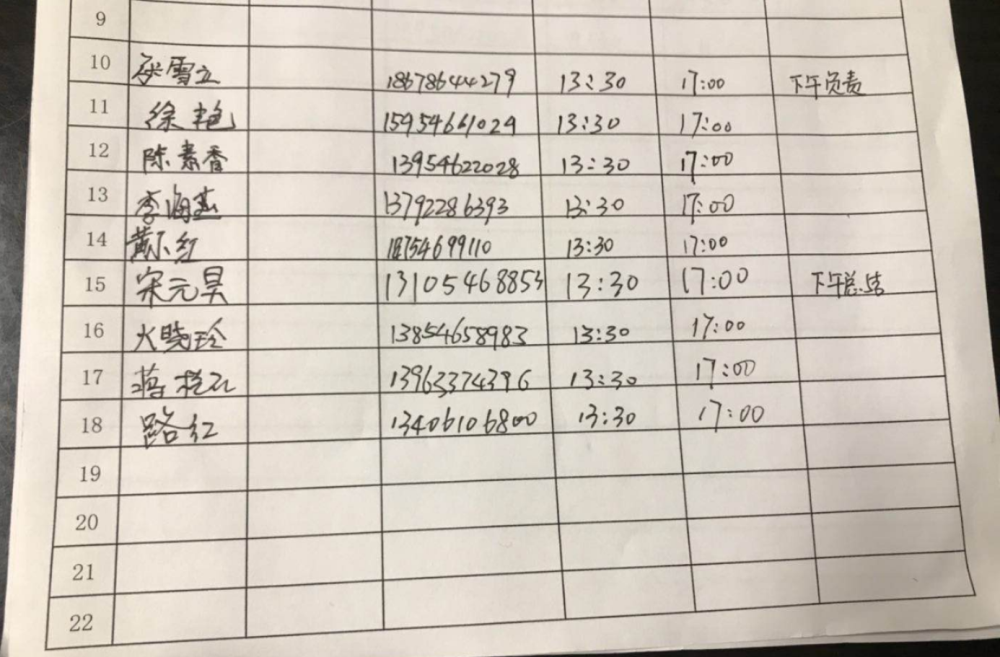 9
10 张雪立 18678644279 13:30 17:00 下午负责
11 徐艳 15954661029 13:30 17:00
12 陈素香 13954622028 13:30 17:00
13 李海燕 13792286393 13:30 17:00
14 黄小红 18754699110 13:30 17:00
15 宋元昊 13105468853 13:30 17:00 下午总结
16 火晓玲 13854658983 13:30 17:00
17 蒋 13963374396 13:30 17:00
18 路红 13406106800 13:30 17:00
19
20
21
22